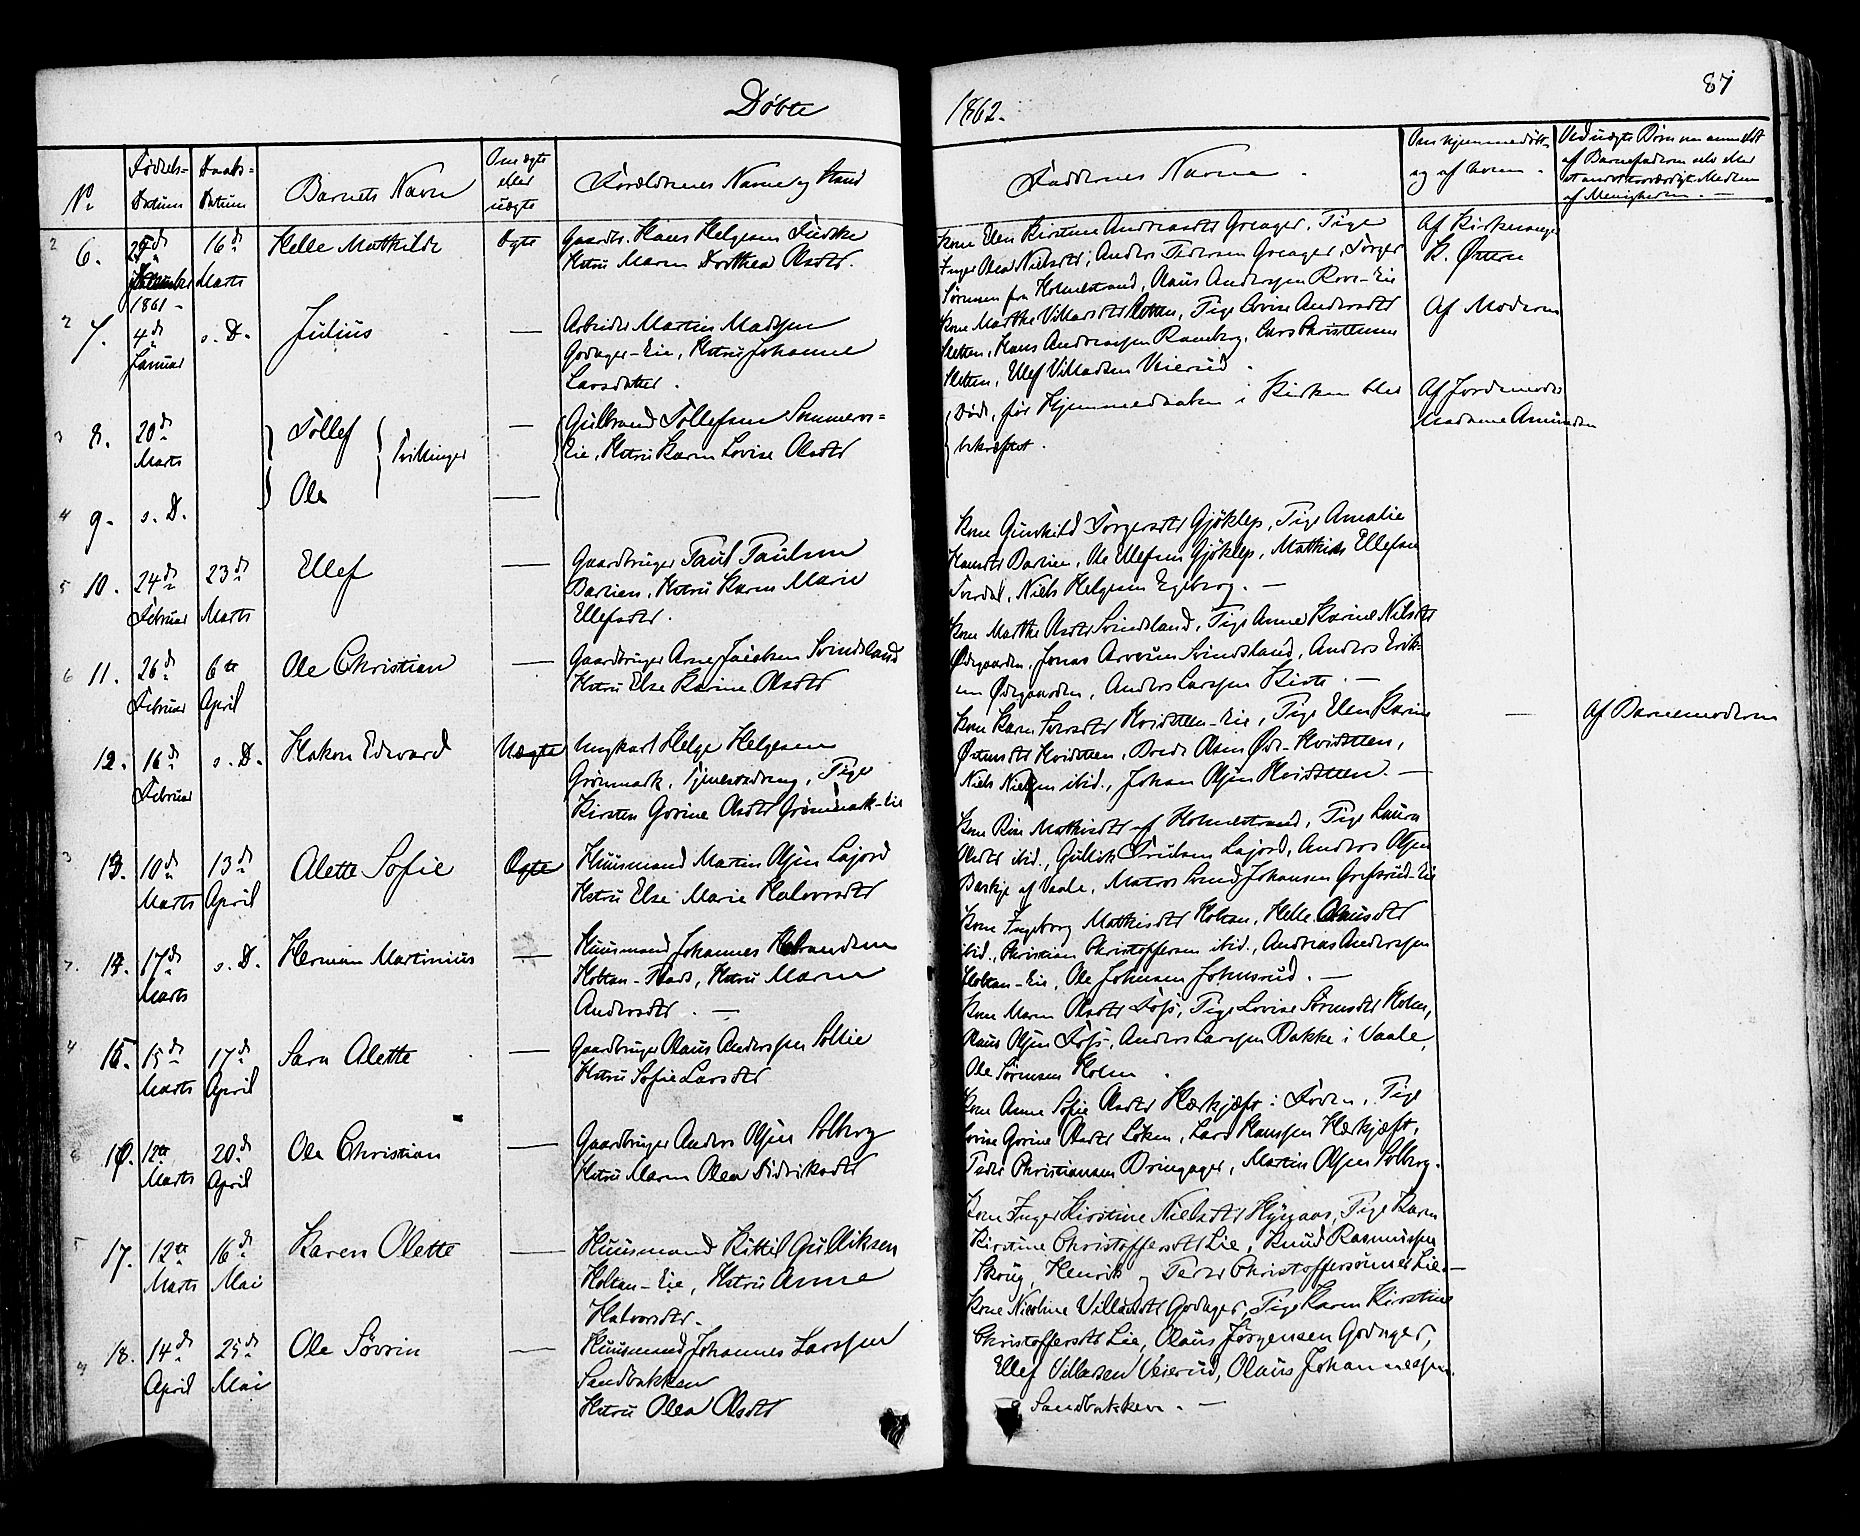 Døbte
1862.
87
No
Fødsels-
Datum
Daabs-
Datum
Barnets Navn
Om ægte
eller
uægte
Forældrenes Navne og Stand
Faddernes Navne.
Om hjemmedøbt
og af hvem.
Ved uægte Børn om anmeldt
af Barnefaderen selv eller
et andet troværdigt Medlem
af Menigheden. —
2 6.
25de
1861
16de
Marts
Helle Mathilde
Ægte
Gaardbr. Hans Helgesen
Hstru Maren Dorthea Olsdtr.
Kone Elen Kirstine Andreasdtr Greager, Pige
Inger Olea Nielsdtr, Anders Pedersen Greager, Torger
Sørensen fra Holmestrand, Claus Anderssen Rove-Eie
Af Kirkesanger
K. Østern
2 7.
4de
Januar
s. D.
Julius
—
Arbeider Martin Madssen
Godager-Eie, Hstru Johanne
Larsdatter.
Kone Marthe Villadsdtr, Pige Lovise Andersdtr
Sletten, Hans Andreassen Ramberg, Lars Christensen
Sletten, Ellef Villadsen Veierud.
Af Moderen
3 8.
20de
Marts
Tollef
Tvillinger
—
Gulbrand Tollefsen Sommeros-
Eie, Hstru Karen Lovise Olsdtr
Døde, før Hjemmedaaben i Kirken blev
bekræftet.
Af Jordemoder
Madame Amundsen
4 9.
s. D.
Ole
—
5 10.
24de
Februar
23de
Marts
Ellef
—
Gaardbruger Paul Paulsen
Barlien, Hstru Karen Marie
Ellefsdtr.
Kone Gunhild Torgersdtr Gjøklep, Pige Amalie
Hansdtr Barlien, Ole Ellefsen Gjøklep, Mathias Ellefsen
Toverdal, Niels Helgesen Egeberg. —
6 11.
26de
Februar
6te
April
Ole Christian
—
Gaardbruger Arne Jacobsen Svindsland
Hstru Else Karine Olsdtr
Kone Marthe Olsdtr Svindsland, Pige Anne Karine Nilsdtr
Ødegaarden, Jonas Arvesen Svindsland, Anders Erik-
sen Ødegaarden, Anders Larssen Kirte. —
12.
16de
Februar
s. D.
Hakon Edvard
Uægte
Ungkarl Helge Helgesen
Grønmark, Tjenestedreng, Pige
Kirsten Gorine Olsdtr Grønmark-Eie
Kone Karen Iversdtr Hvidsteen-Eie, Pige Elen Karine
Østensdtr Hvidsteen, Brede Olsen Øde-Hvidsteen,
Niels Nielsen ibid., Johan Olsen Hvidsteen. —
—
Af Barnemoderen
3 13.
10de
Marts
13de
April
Alette Sofie
Ægte
Huusmand Martin Olsen Lajord
Hstru Else Marie Halvorsdtr
Kone Mathisdtr af Holmestrand, Pige Laura
Olsdtr ibid., Gullik Trulsen Lajord, Anders Olsen
Baskje af Vaale, Matros Svend Johansen Grefsrud-Eie
7. 14.
17de
Marts
s. D.
Herman Martinius
—
Huusmand Johannes
Holtan-Stads, Hstru Maren
Andersdtr. —
Kone Ingeborg Mathisdtr Holtan, Helle Clausdtr
ibid., Christian Christoffersen ibid., Andreas Anderssen
Holtan-Eie, Ole Johnsen Johnsrud. —
4 15.
15de
Marts
17de
April
Sara Alette
—
Gaardbruger Olaus Anderssen Sollie
Hstru Sofie Larsdtr
Kone Maren Olsdtr Fossj, Pige Lovise Sørensdtr Holm,
Claus Olsen Fossj, Anders Larssen Bakke i Vaale,
Ole Sørensen Holm.
6 16.
12te
Marts
20de
April
Ole Christian
—
Gaardbruger Anders Olsen Solberg
Hstru Maren Olea Didriksdtr
Kone Anne Sofie Olsdtr Herkjeft i Foden, Pige
Lovise Gorine Olsdtr Løken, Lars Hanssen Herkjeft,
Peder Christiansen Bringager, Martin Olsen Solberg.
5 17.
12te
Marts
16de
Mai
Karen Olette
—
Huusmand Kittil Gulliksen
Holtan-Eie, Hstru Anne
Halvorsdtr.
Kone Inger Kirstine Nielsdtr Hyggaas, Pige Karen
Kirstine Christoffersdtr Lie, Knud Rasmussen
Skoug, Henrik og Peder Christoffersønner Lie. —
9 18.
14de
April
25de
Mai
Ole Søvrin
—
Huusmand Johannes Larssen
Sandbakken
Hstru Olea Olsdtr
Kone Nicoline Villumsdtr Godager, Pige Karen Kirstine
Christoffersdtr Lie, Olaus Jørgensen Godager,
Ellef Villadsen Veierud, Olaus Johannessen
Sandbakken. —